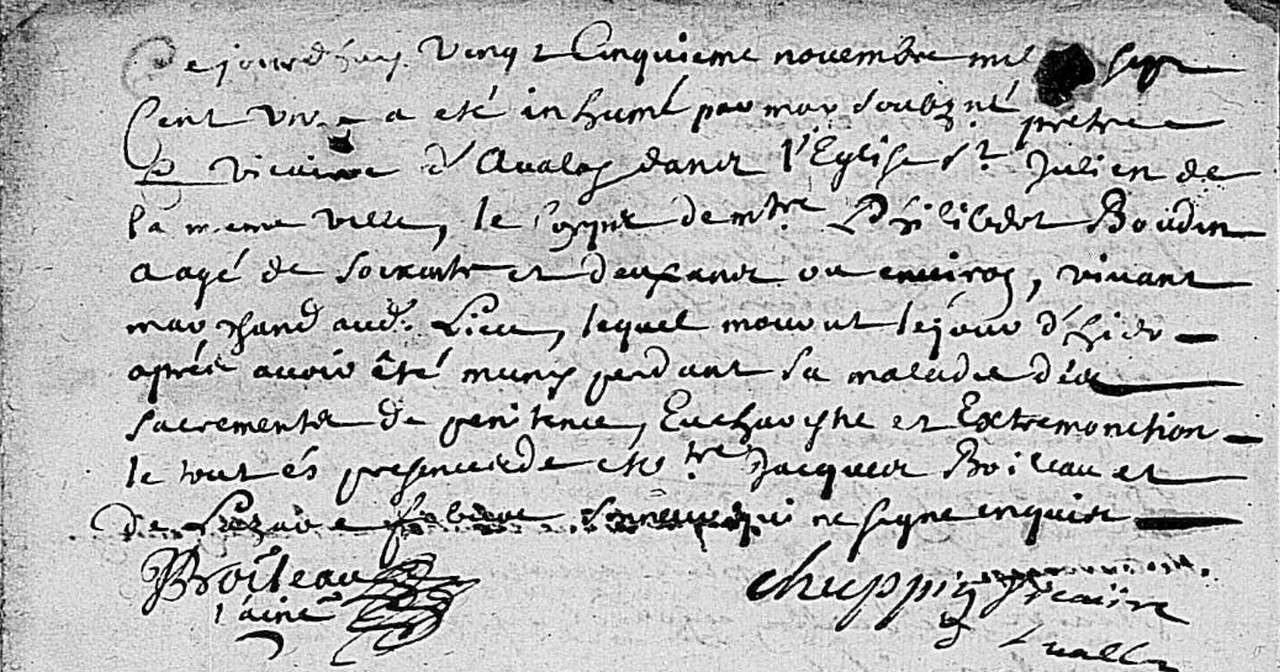 Cejourdhuy Vingt Cinquieme novembre mil sept
Cent unze a eté inhumé par moy soubzné prêtre
vicaire d'Avalon dans l'Eglise St Julien de
la meme ville, le corps de mtre Philibert Boudin
aagé de soixante et deux ans ou environ, vivant
marchand aud. Lieu, lequel mourut le jour d'hier
après avoir été muny pendant sa maladie dés
sacrements de penitence, Eucharystie et Extremonction
le tout és presences de mtre Jacques Boileau et
de Lazare sonneur qui ne signe enquis
JBoileau
l'ainé
Chuppin vicaire